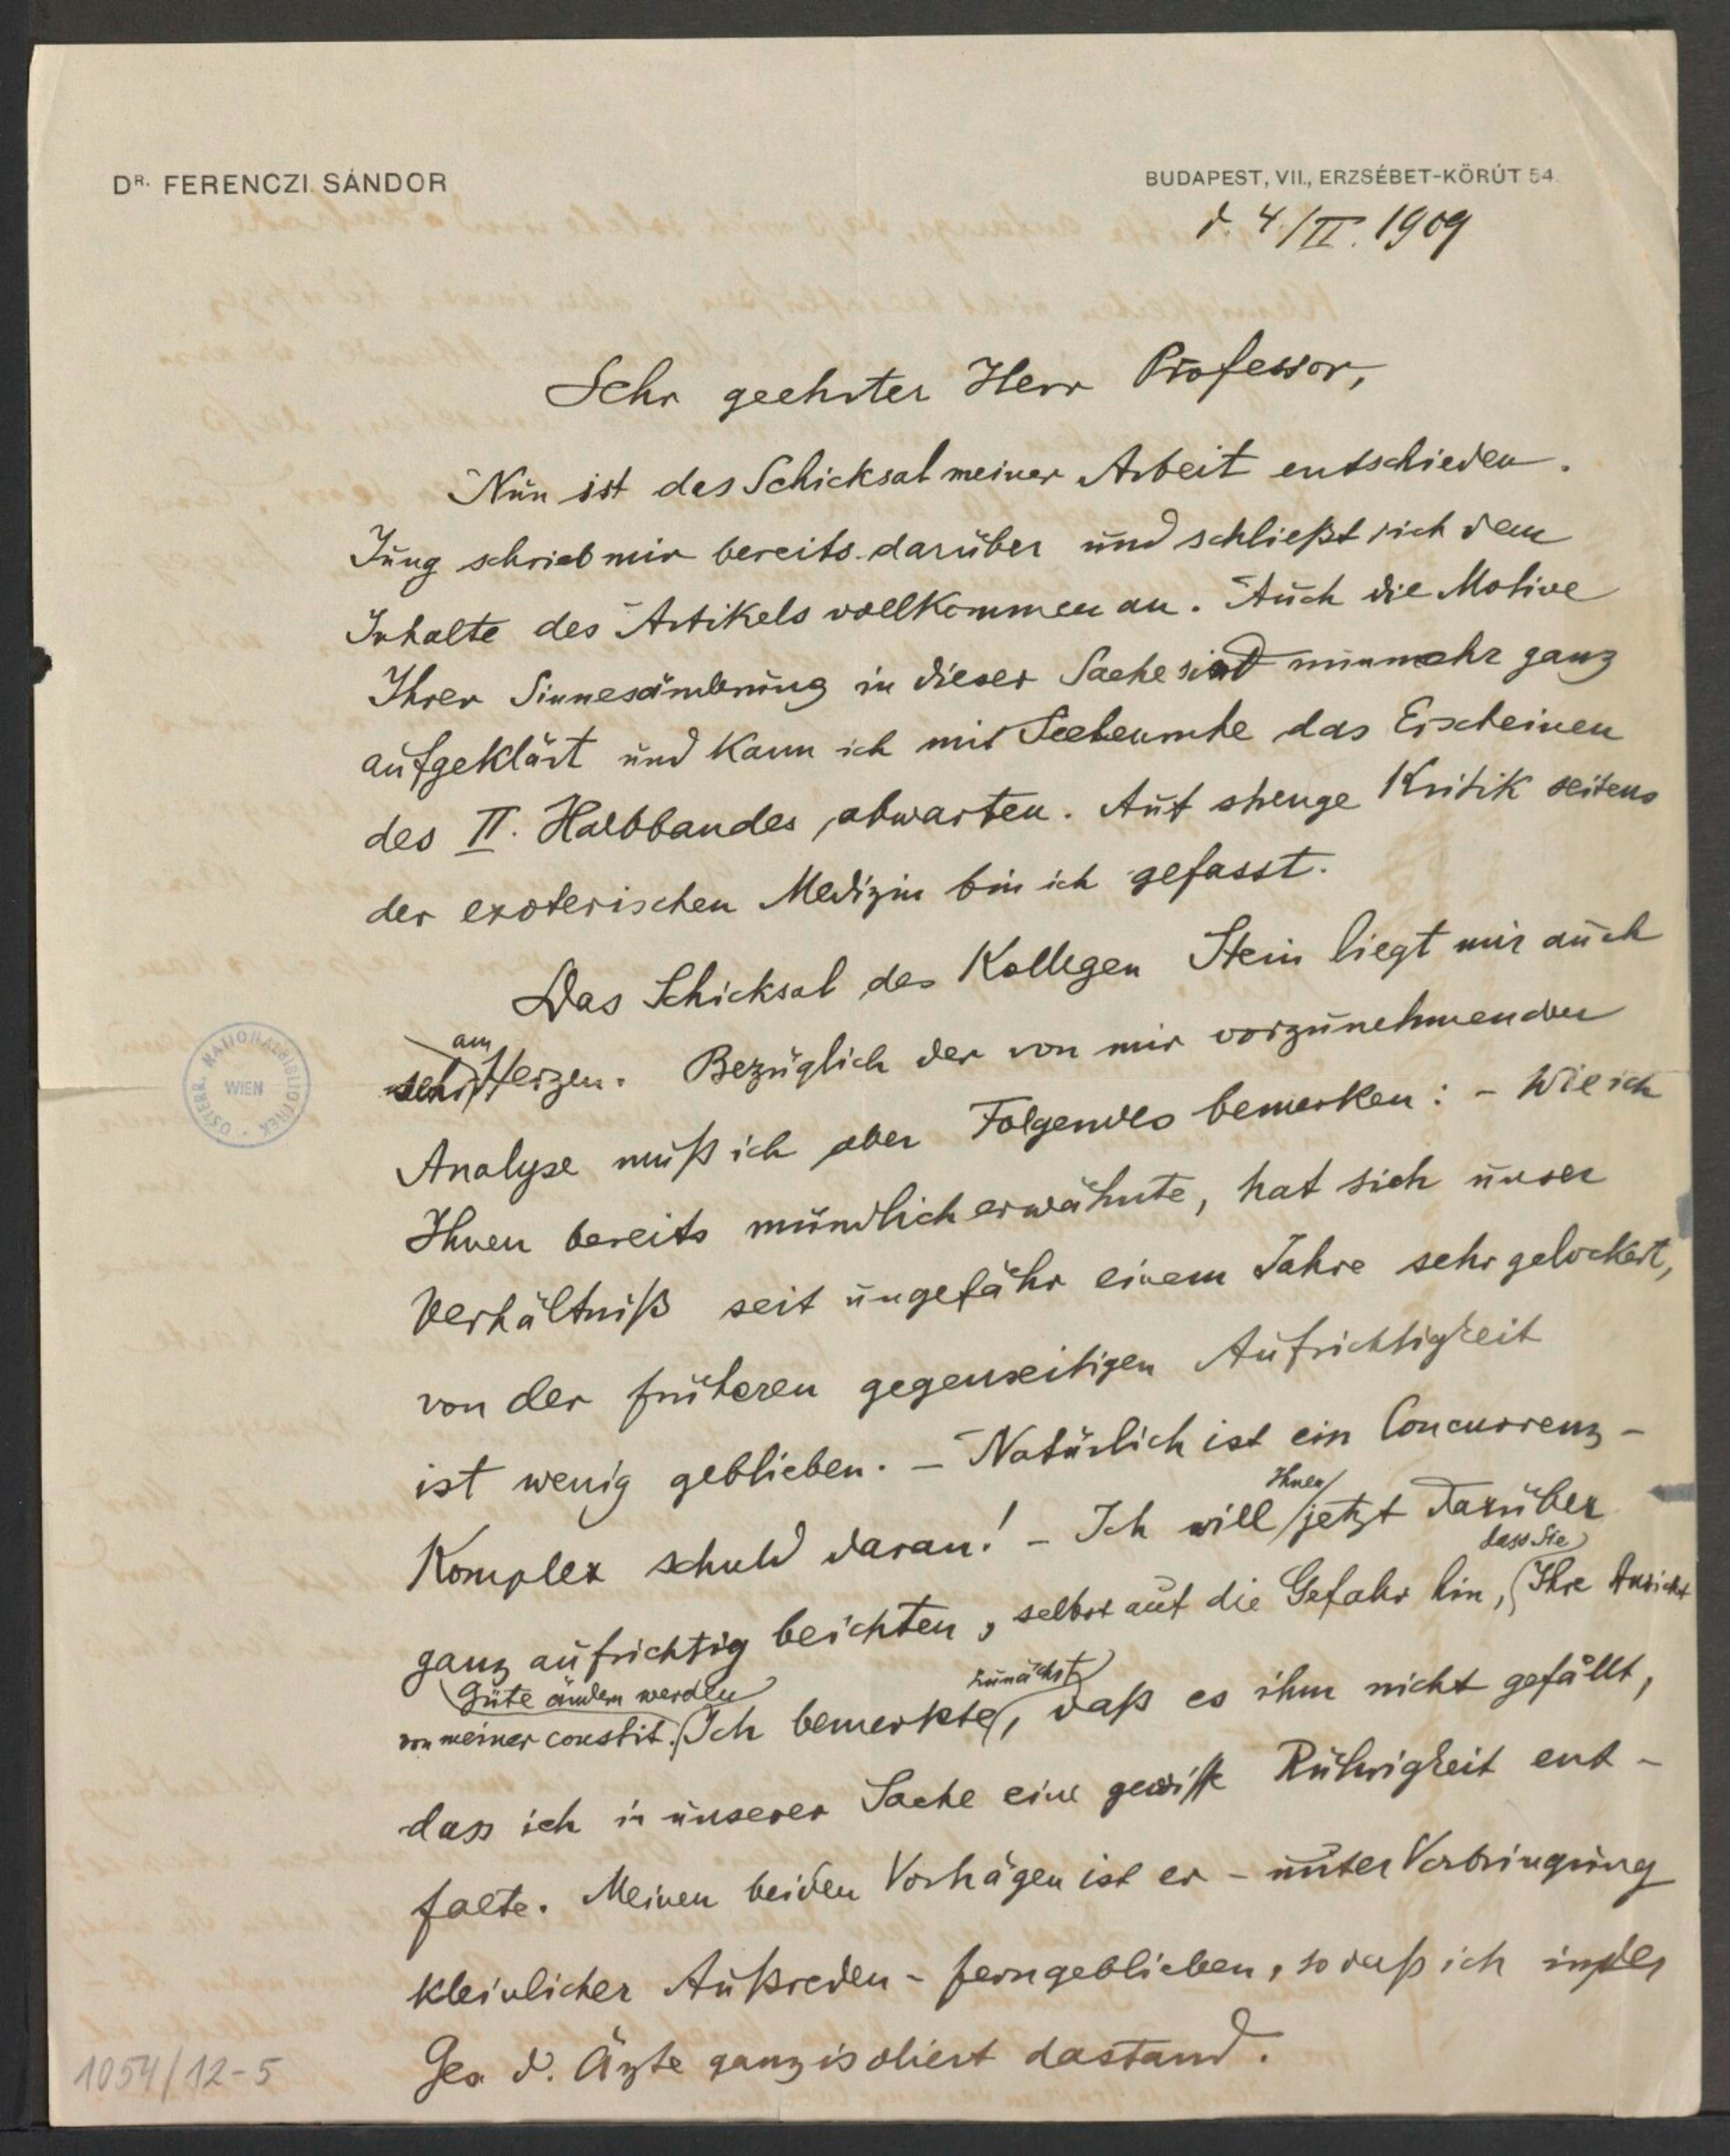 DR. FERENCZI SÁNDOR
BUDAPEST, VII., ERZSÉBET-KÖRÚT 54.
d. 4./II. 1909
Sehr geehrter Herr Professor,
Nun ist das Schicksal meiner Arbeit entschieden.
Jung schrieb mir bereits darüber und schließt sich dem
Inhalte des Artikels vollkommen an. Auch die Motive
Ihrer Sinnesänderung in dieser Sache sind nunmehr ganz
aufgeklärt und kann ich mit Seelenruhe das Erscheinen
des II. Halbbandes abwarten. Auf strenge Kritik seitens
der exoterischen Medizin bin ich gefasst.
Das Schicksal des Kollegen Stein liegt mir auch
am
sehr Herzen. Bezüglich der von mir vorzunehmenden
Analyse muß ich aber Folgendes bemerken: - Wie ich
Ihnen bereits mündlich erwähnte, hat sich unser
Verhältniß seit ungefähr einem Jahre sehr gelockert,
von der früheren gegenseitigen Aufrichtigkeit
ist wenig geblieben. - Natürlich ist ein Concurrenz-
Komplex schuld daran! - Ich will Ihnen jetzt darüber
ganz aufrichtig beichten, selbst auf die Gefahr hin, dass Sie Ihre Ansicht
von meiner constit. Güte ändern werden
Ich bemerkte zunächst, daß es ihm nicht gefällt,
dass ich in unserer Sache eine gewisse Rührigkeit ent-
falte. Meinen beiden Vorträgen ist er - unter Vorbringung
kleinlicher Außreden - ferngeblieben, so daß ich in der
Ges. d. Ärzte ganz isoliert dastand.
ÖSTERR. NATIONALBIBLIOTHEK
WIEN
1054/12-5